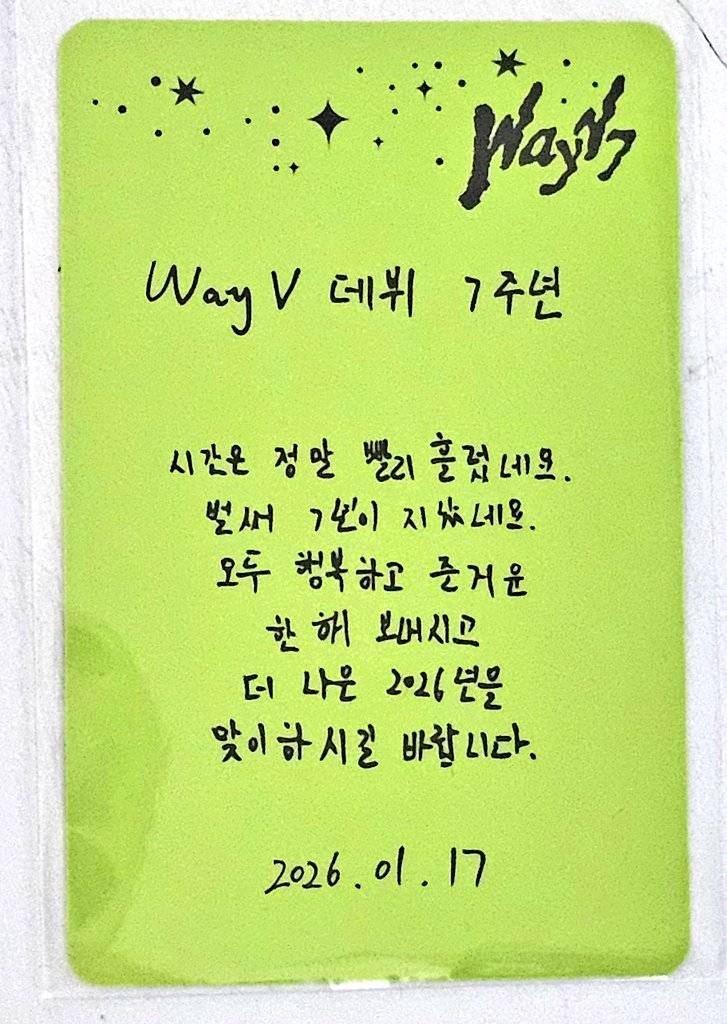 WayV7
WayV 데뷔 7주년
시간은 정말 빨리 흘렀네요.
벌써 7년이 지났네요.
모두 행복하고 즐거운
한 해 보내시고
더 나은 2026년을
맞이하시길 바랍니다.
2026.01.17